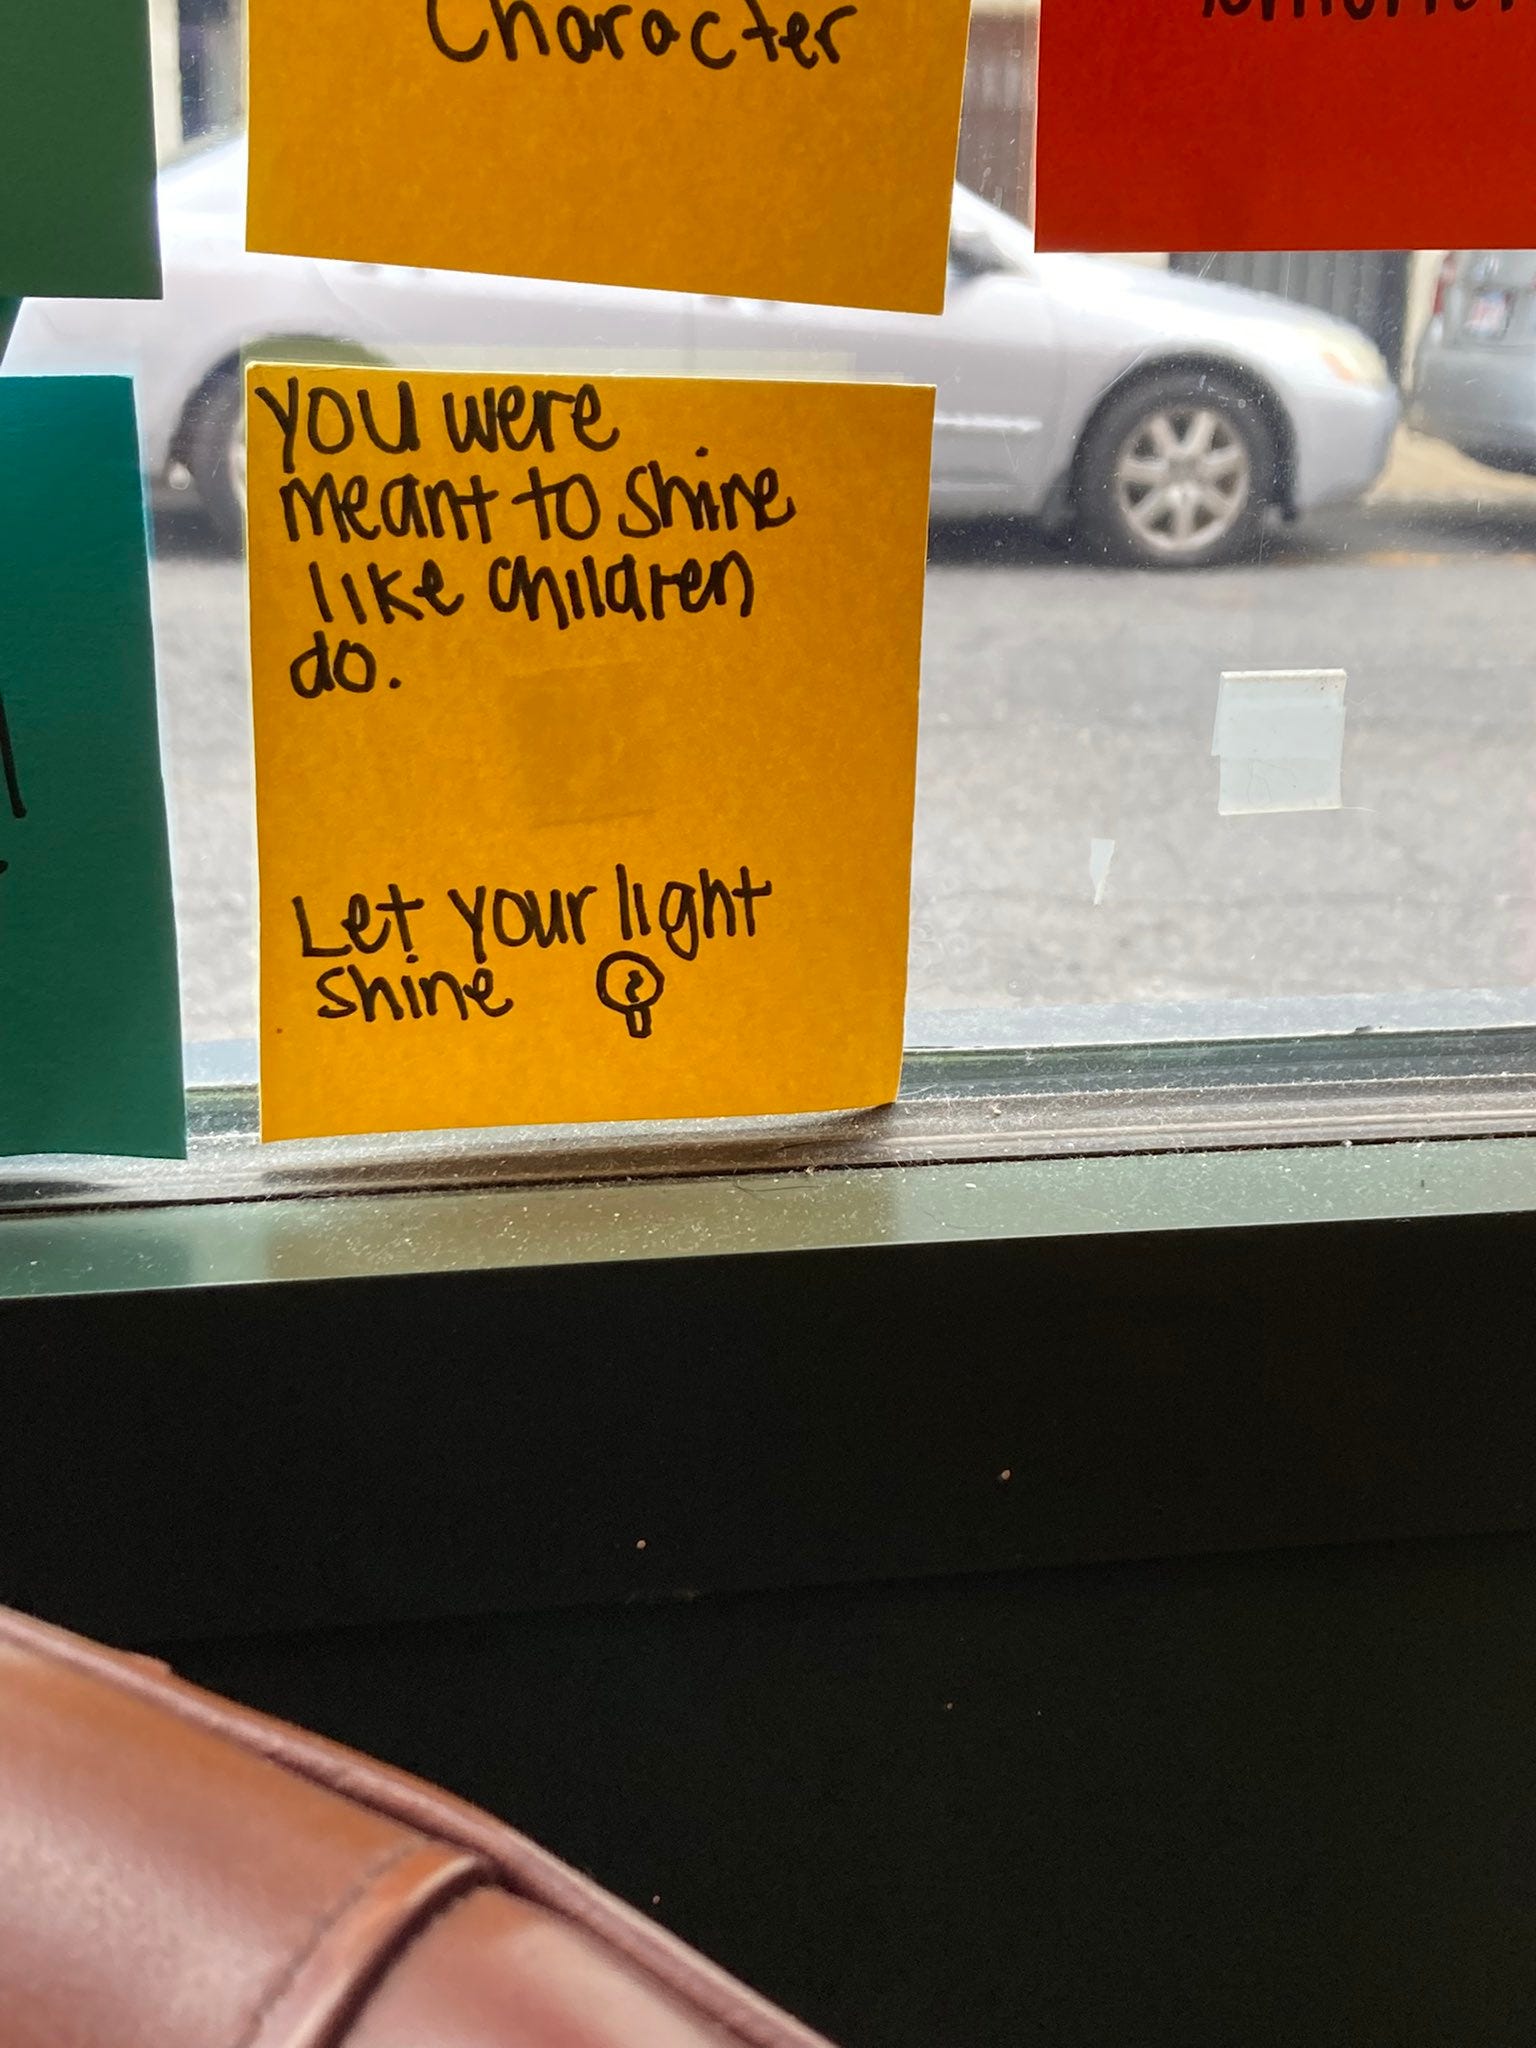 Character
You were
meant to shine
like children
do.
Let your light
shine